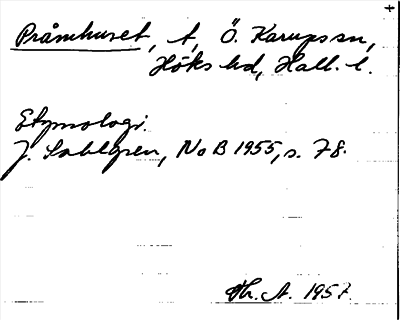 Pråmhuset, t, Ö. Karups sn,
Höks hd, Hall. l.
Etymologi.
J. Sahlgren, NoB 1955, s. 78.
Th. A. 1957.